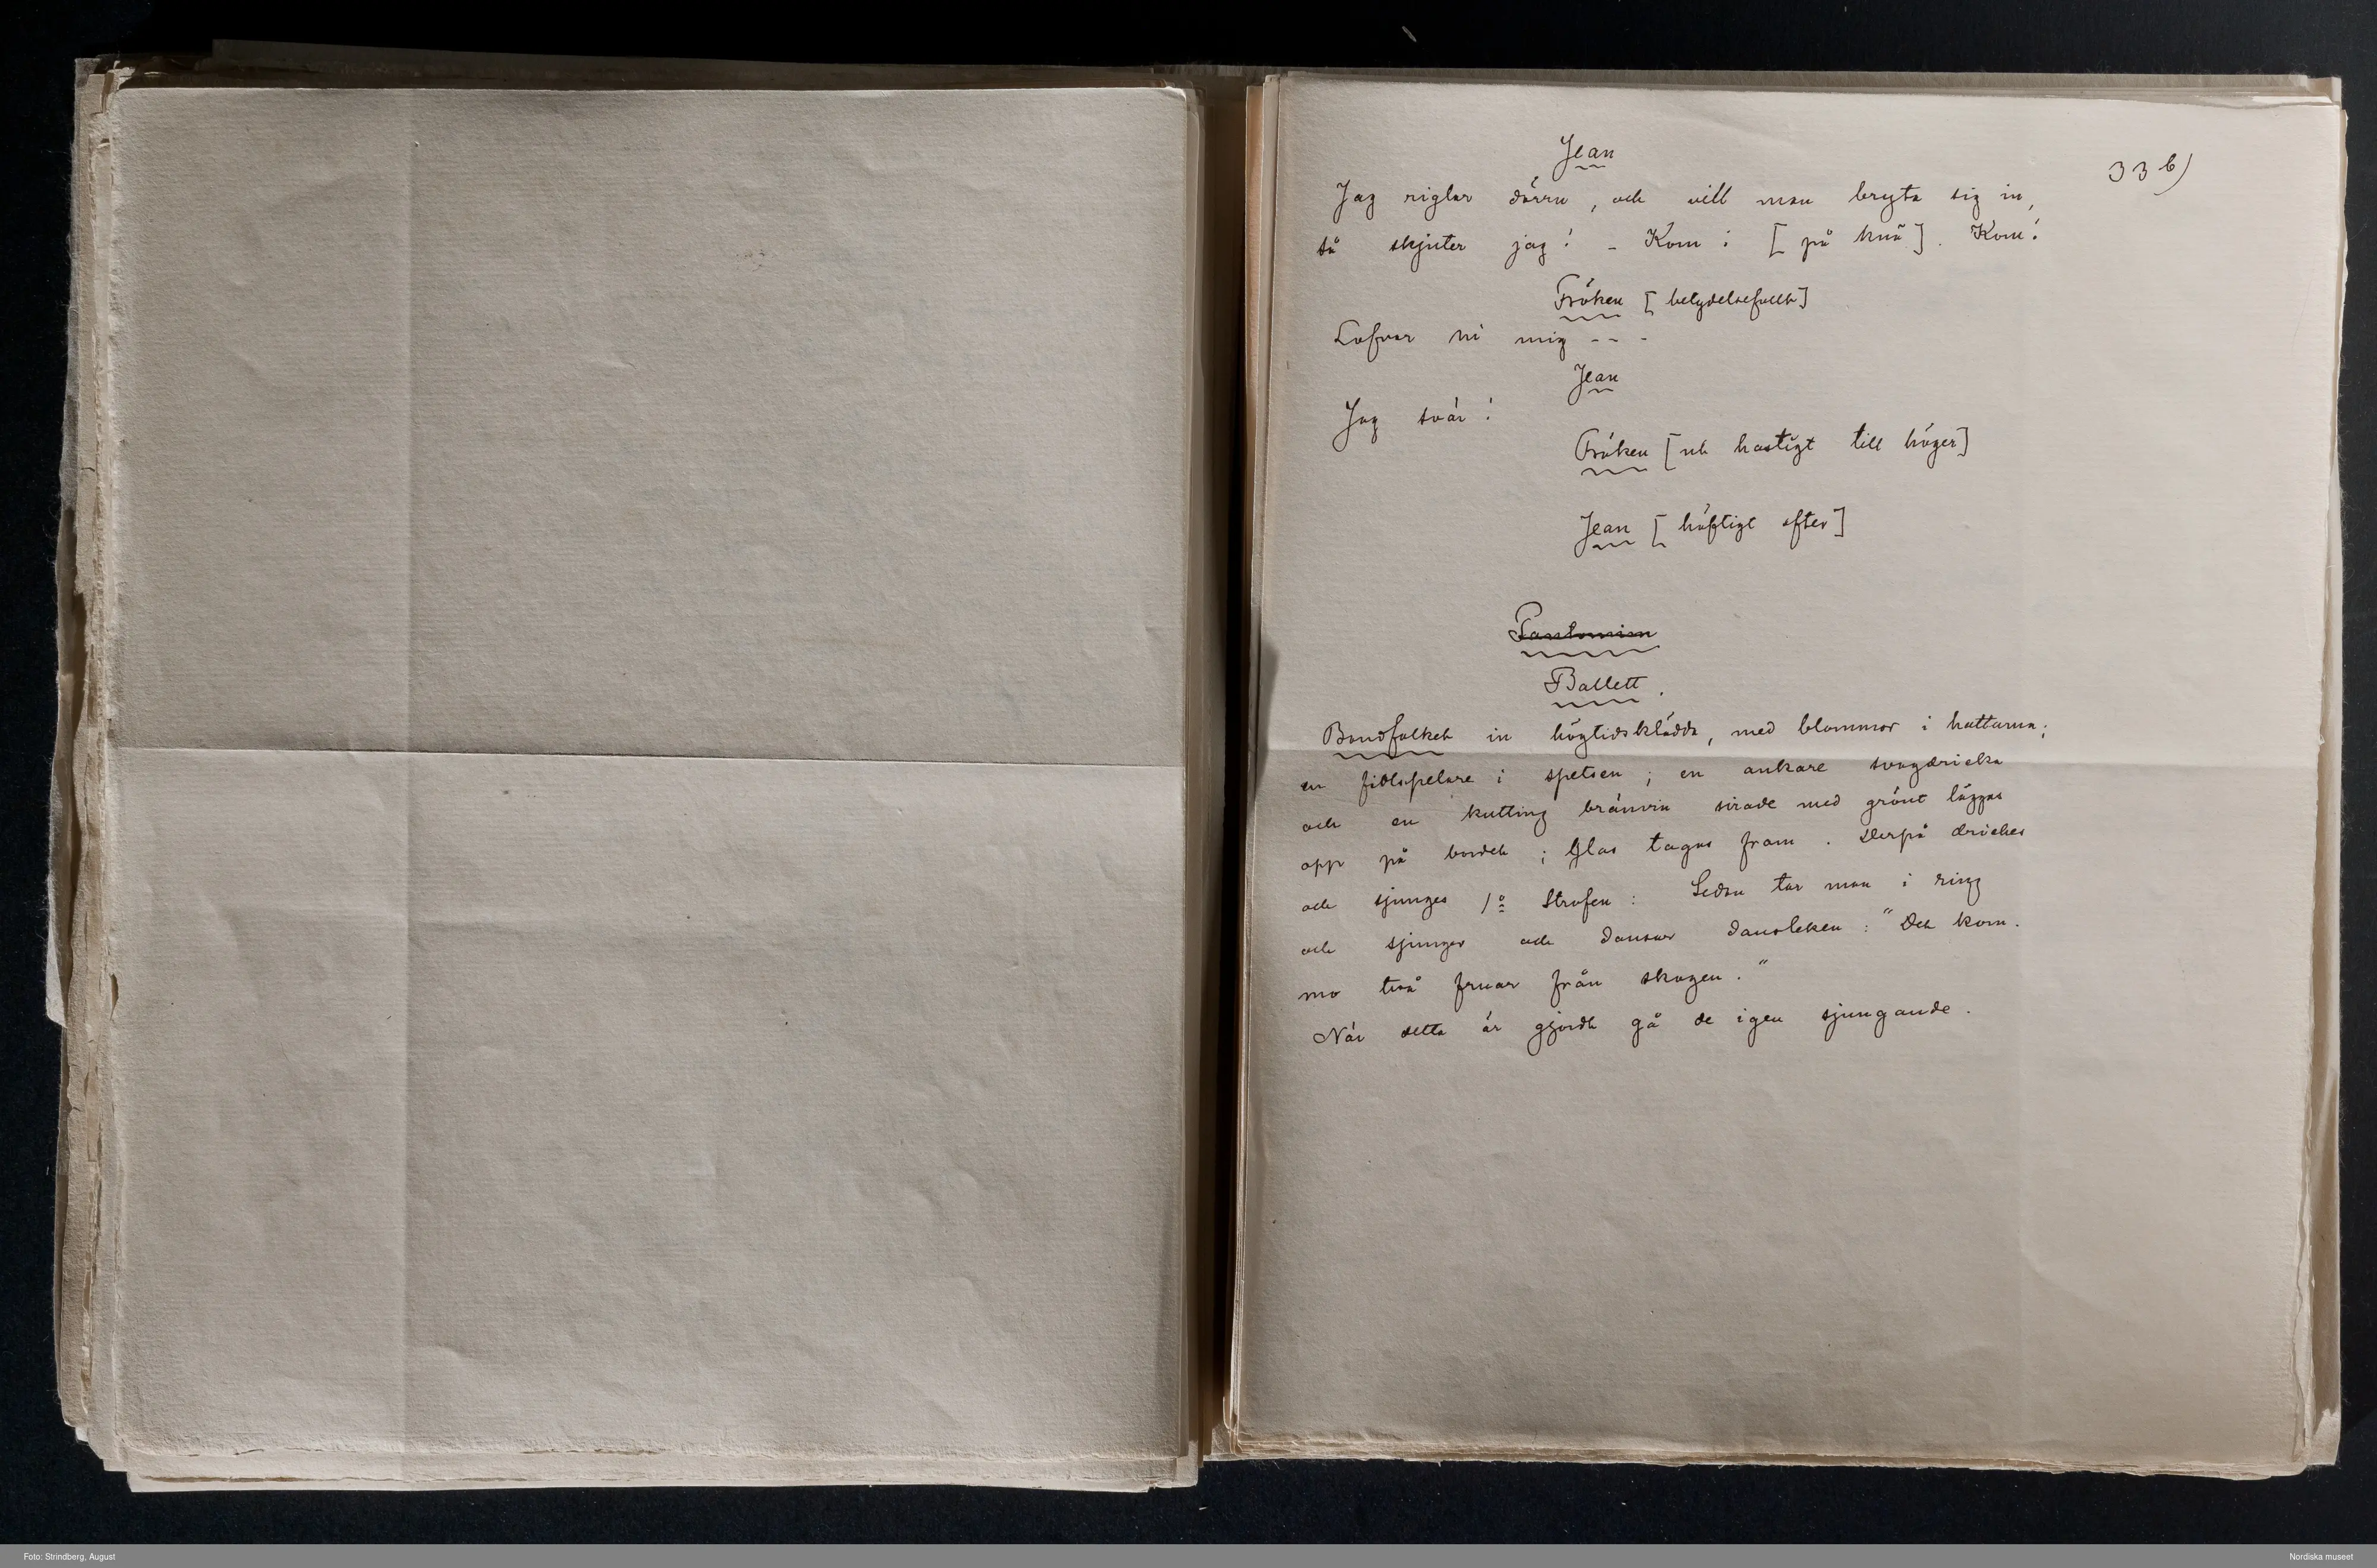 33 b)
Jean
Jag riglar dörrn, och vill man bryta sig in,
så skjuter jag! – Kom! [på knä]. Kom!
Fröken [betydelsefullt]
Lofvar ni mig - - -
Jean
Jag svär!
Fröken [ut hastigt till höger]
Jean [häftigt efter]
Pantomim
Ballett.
Bondfolket in högtidsklädda, med blommor i hattarna;
en fiolspelare i spetsen; en ankare svagdricka
och en kutting bränvin sirade med grönt läggas
opp på bordet; Glas tagas fram. Derpå drickes
och sjunges 1a Strofen: Sedan tar man i ring
och sjunger och dansar dansleken: "Det kom.
mo två fruar från skogen."
När detta är gjordt gå de igen sjungande.
Foto: Strindberg, August
Nordiska museet